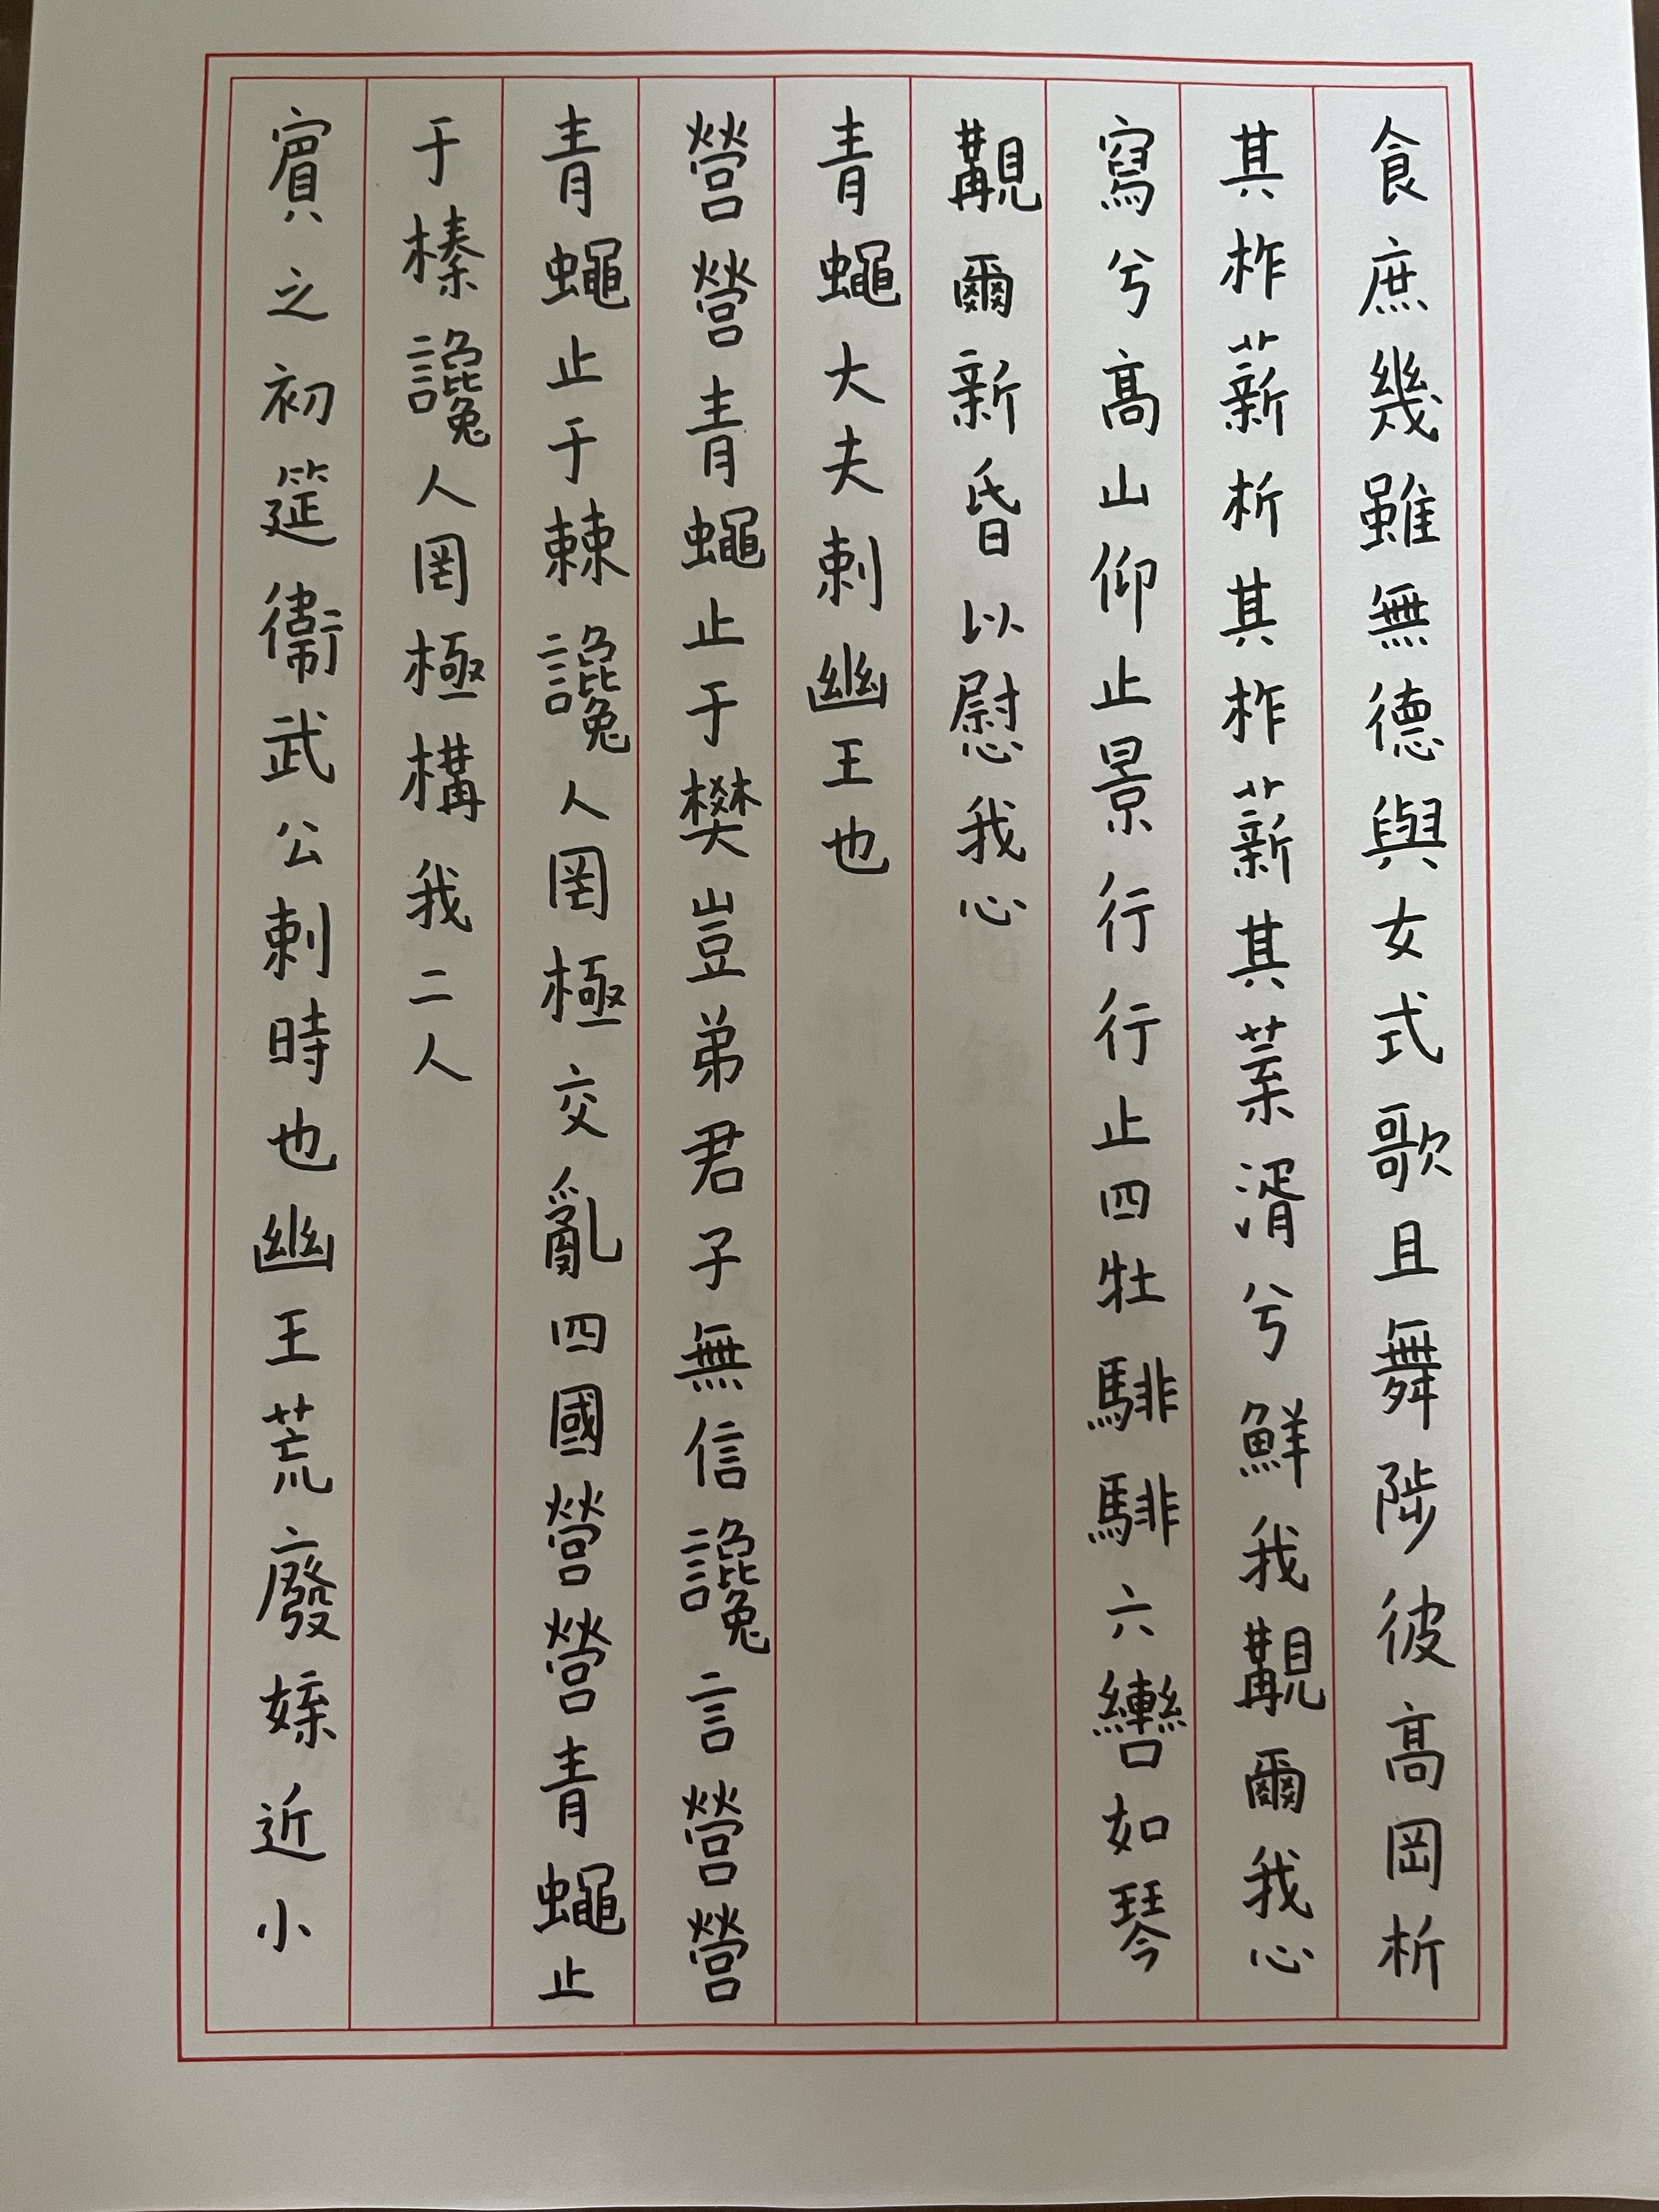 食庶幾雖無德與女式歌且舞陟彼高岡析
其柞薪析其柞薪其葉湑兮鮮我覯爾我心
寫兮高山仰止景行行止四牡騑騑六轡如琴
覯爾新昏以慰我心
青蠅大夫刺幽王也
營營青蠅止于樊豈弟君子無信讒言營營
青蠅止于棘讒人罔極交亂四國營營青蠅止
于榛讒人罔極構我二人
賓之初筵衞武公刺時也幽王荒廢媟近小